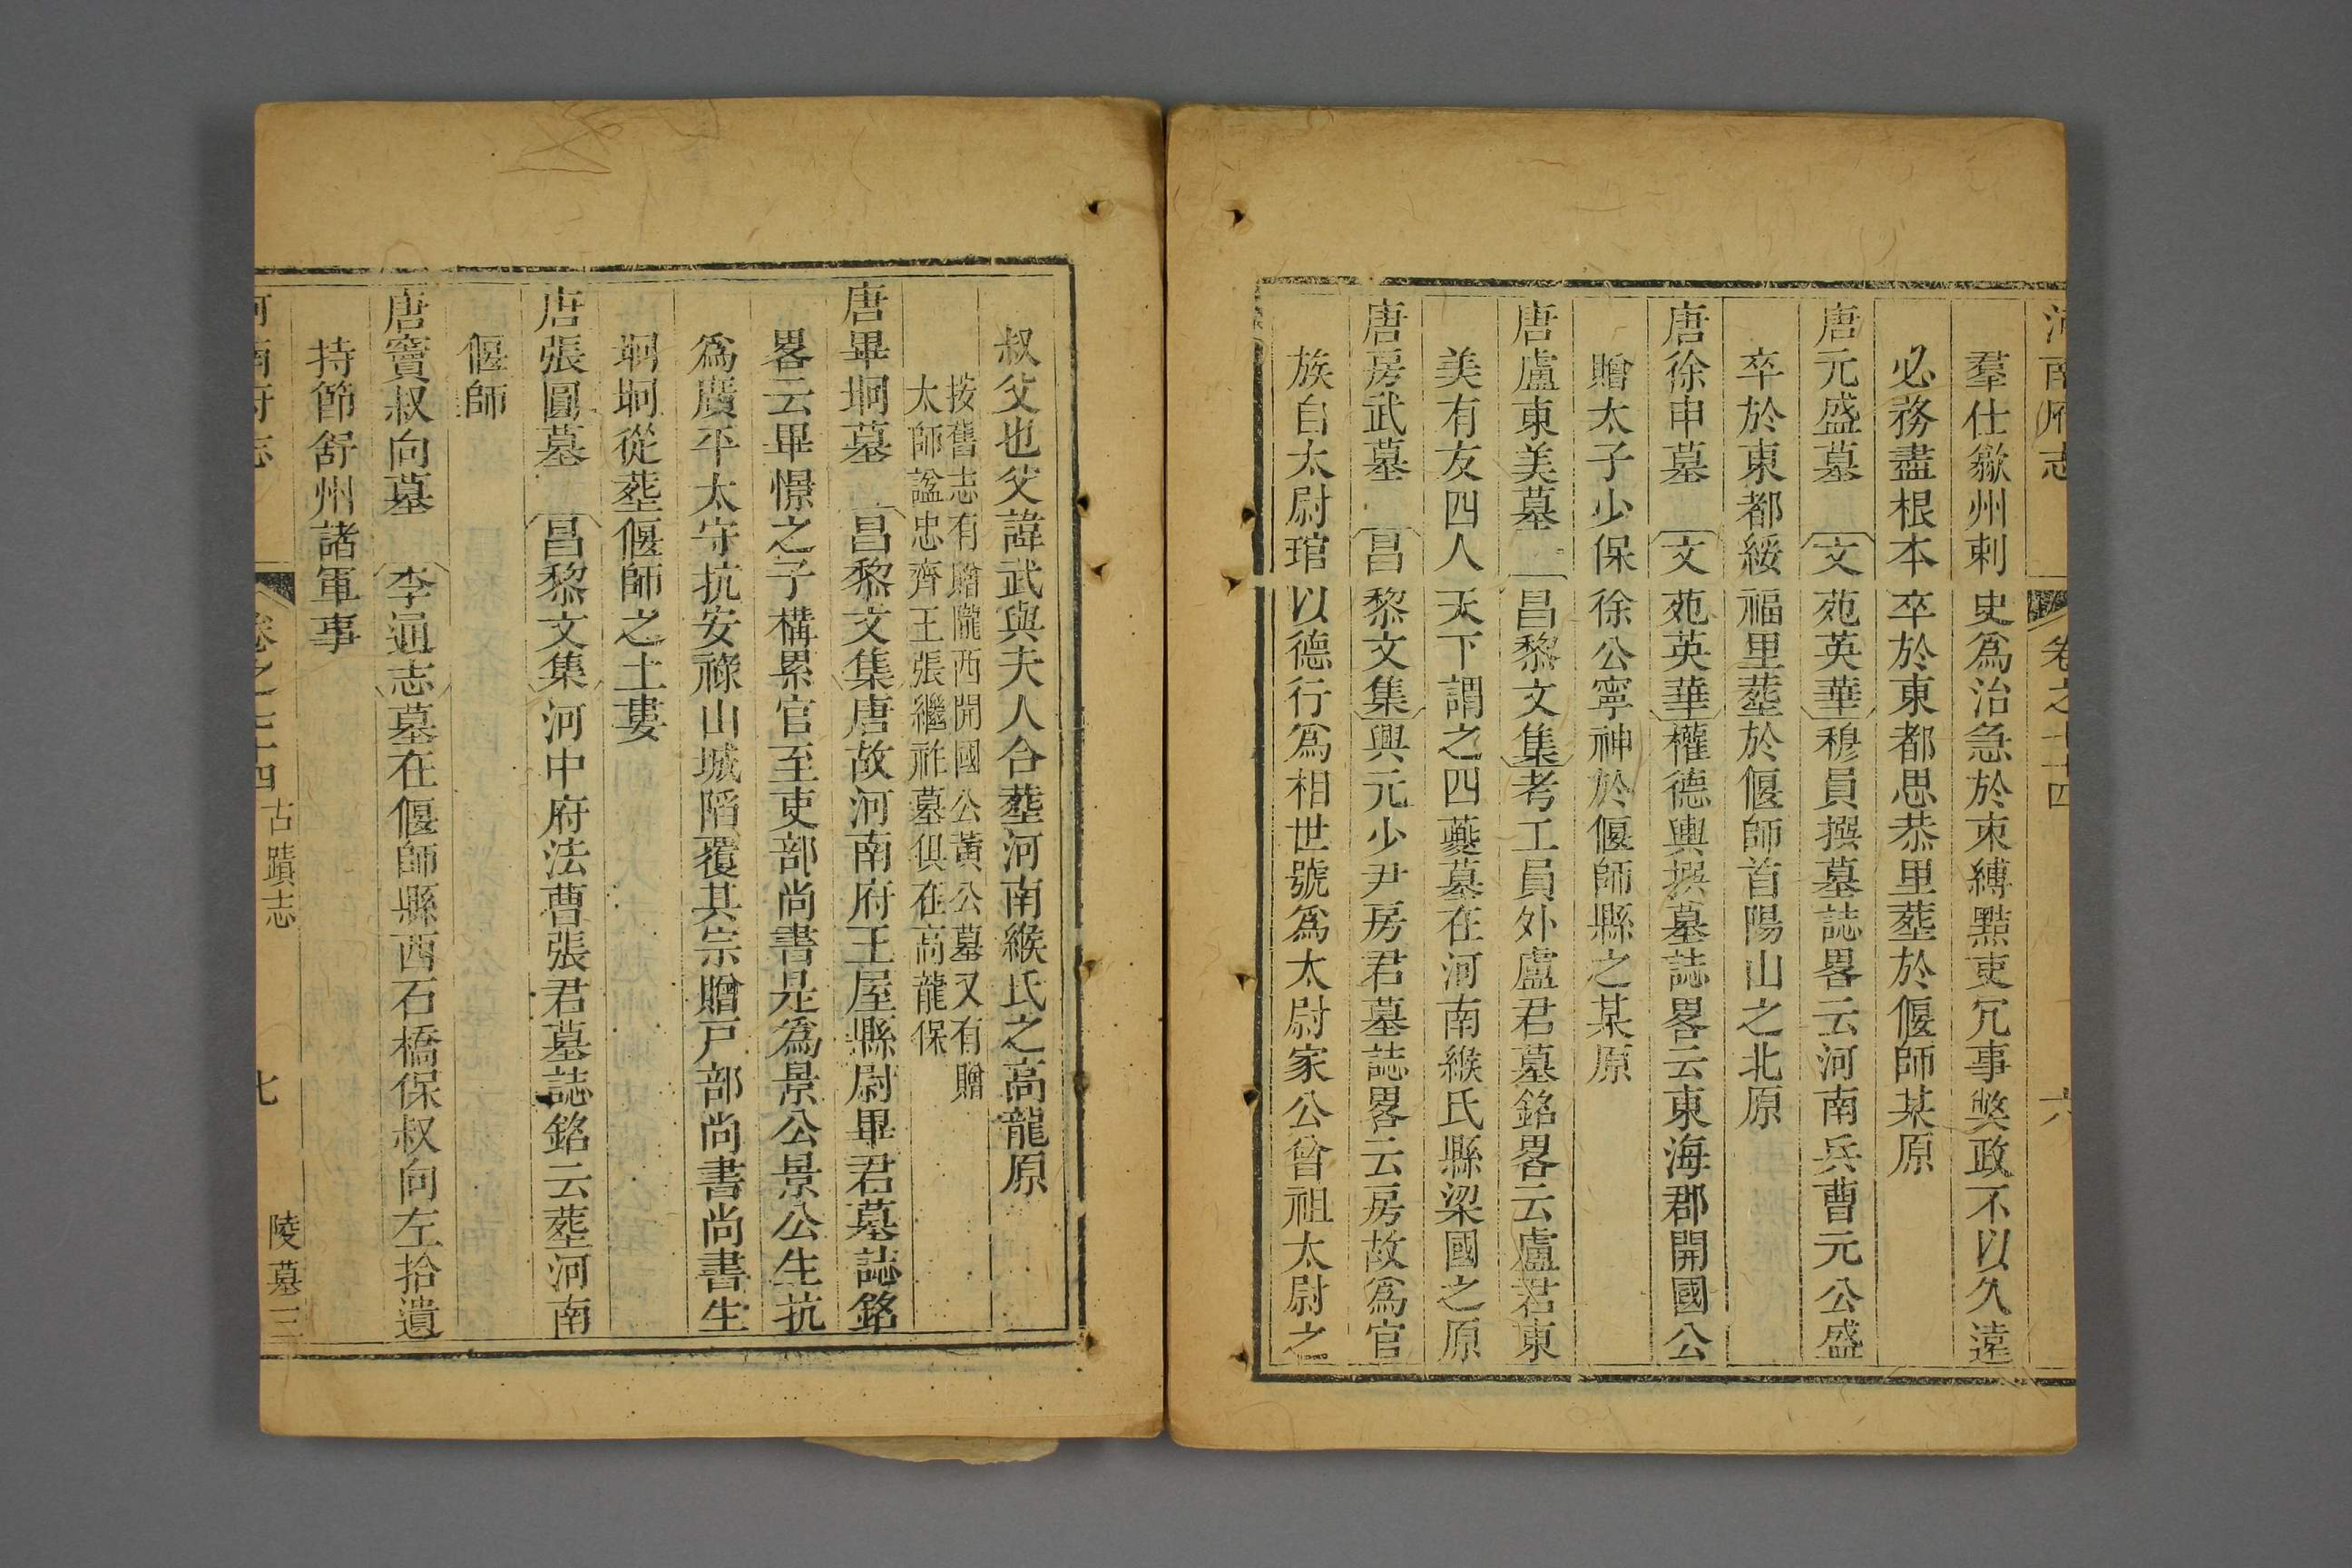 河南府志 卷之 十四 六
羣仕歙州刺史爲治急於束縛黠吏冗事獘政不以久遠
必務盡根本卒於東都思恭里塟於偃師某原
唐元盛墓 文苑英華穆員撰墓誌畧云河南兵曹元公盛
卒於東都綏福里塟於偃師首陽山之北原
唐徐申墓 文苑英華權德輿撰墓誌畧云東海郡開國公
贈太子少保徐公寧神於偃師縣之某原
唐盧東美墓 昌黎文集考工員外盧君墓銘畧云盧君東
美有友四人天下謂之四夔墓在河南緱氏縣梁國之原
唐房武墓 昌黎文集興元少尹房君墓誌畧云房故爲官
族自太尉琯以德行爲相世號爲太尉家公曾祖太尉之
叔父也父諱武與夫人合塟河南緱氏之高龍原
按舊志有贈隴西開國公黃公墓又有贈
太師諡忠齊王張繼祚墓俱在高龍保
唐畢坰墓 昌黎文集唐故河南府王屋縣尉畢君墓誌銘
畧云畢憬之子構累官至吏部尚書是爲景公景公生抗
爲廣平太守抗安祿山城陷覆其宗贈戸部尚書尚書生
坰坰從塟偃師之土婁
唐張圓墓 昌黎文集河中府法曹張君墓誌銘云塟河南
偃師
唐竇叔向墓 李通志墓在偃師縣西石橋保叔向左拾遺
持節舒州諸軍事
河南府志 卷之 十四 古蹟志 七 陵墓三